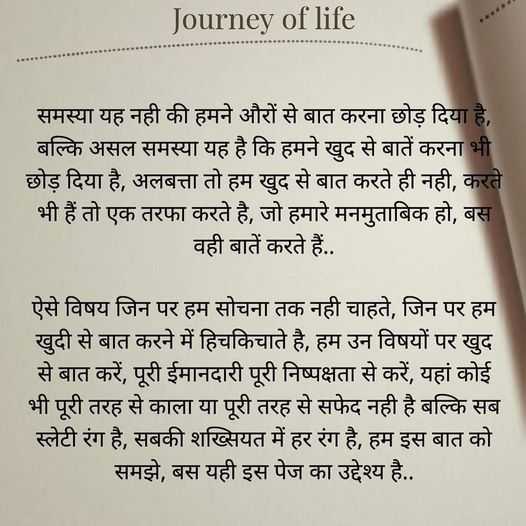 Journey of life
समस्या यह नही की हमने औरों से बात करना छोड़ दिया है,
बल्कि असल समस्या यह है कि हमने खुद से बातें करना भी
छोड़ दिया है, अलबत्ता तो हम खुद से बात करते ही नही, करते
भी हैं तो एक तरफा करते है, जो हमारे मनमुताबिक हो, बस
वही बातें करते हैं..
ऐसे विषय जिन पर हम सोचना तक नही चाहते, जिन पर हम
खुदी से बात करने में हिचकिचाते है, हम उन विषयों पर खुद
से बात करें, पूरी ईमानदारी पूरी निष्पक्षता से करें, यहां कोई
भी पूरी तरह से काला या पूरी तरह से सफेद नही है बल्कि सब
स्लेटी रंग है, सबकी शख्सियत में हर रंग है, हम इस बात को
समझे, बस यही इस पेज का उद्देश्य है..